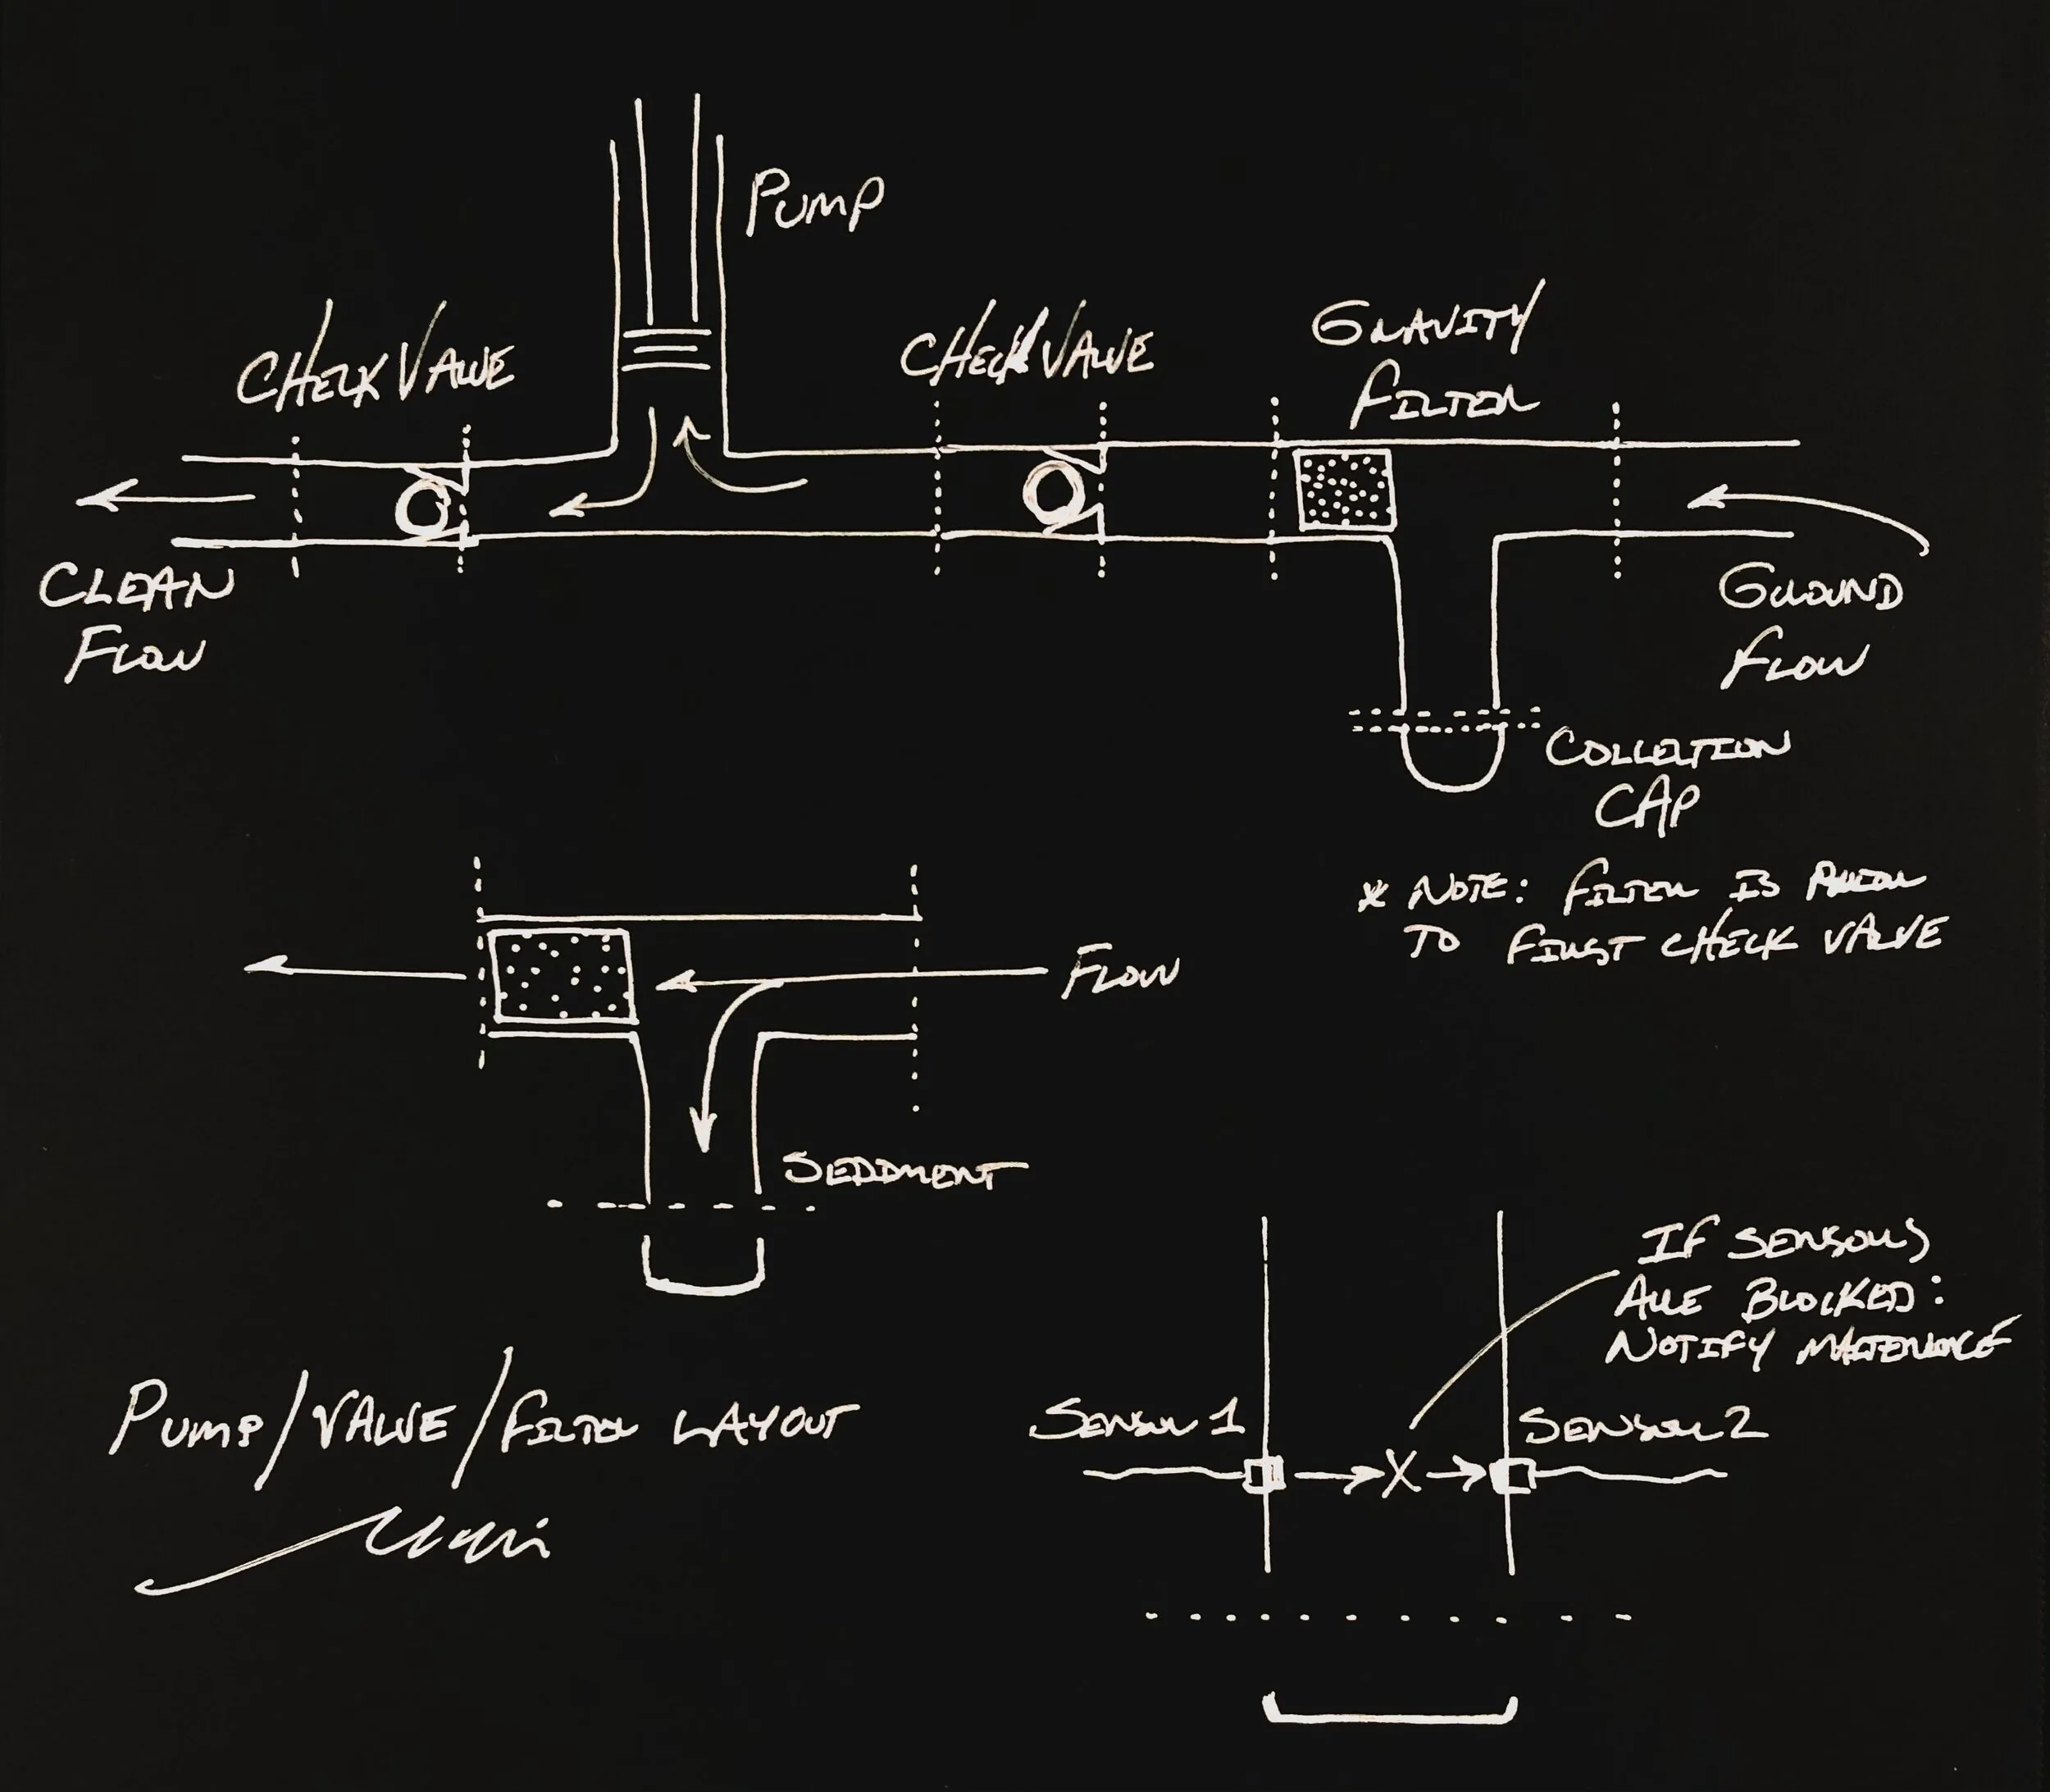 PUMP
CHECK VALVE
CHECK VALVE
GRAVITY
FILTER
CLEAN
FLOW
GROUND
FLOW
COLLECTION
CAP
* NOTE: FILTER IS PRIOR
TO FIRST CHECK VALVE
FLOW
SEDIMENT
IF SENSORS
ARE BLOCKED:
NOTIFY
SENSOR 1
X
SENSOR 2
PUMP/VALVE/FILTER LAYOUT